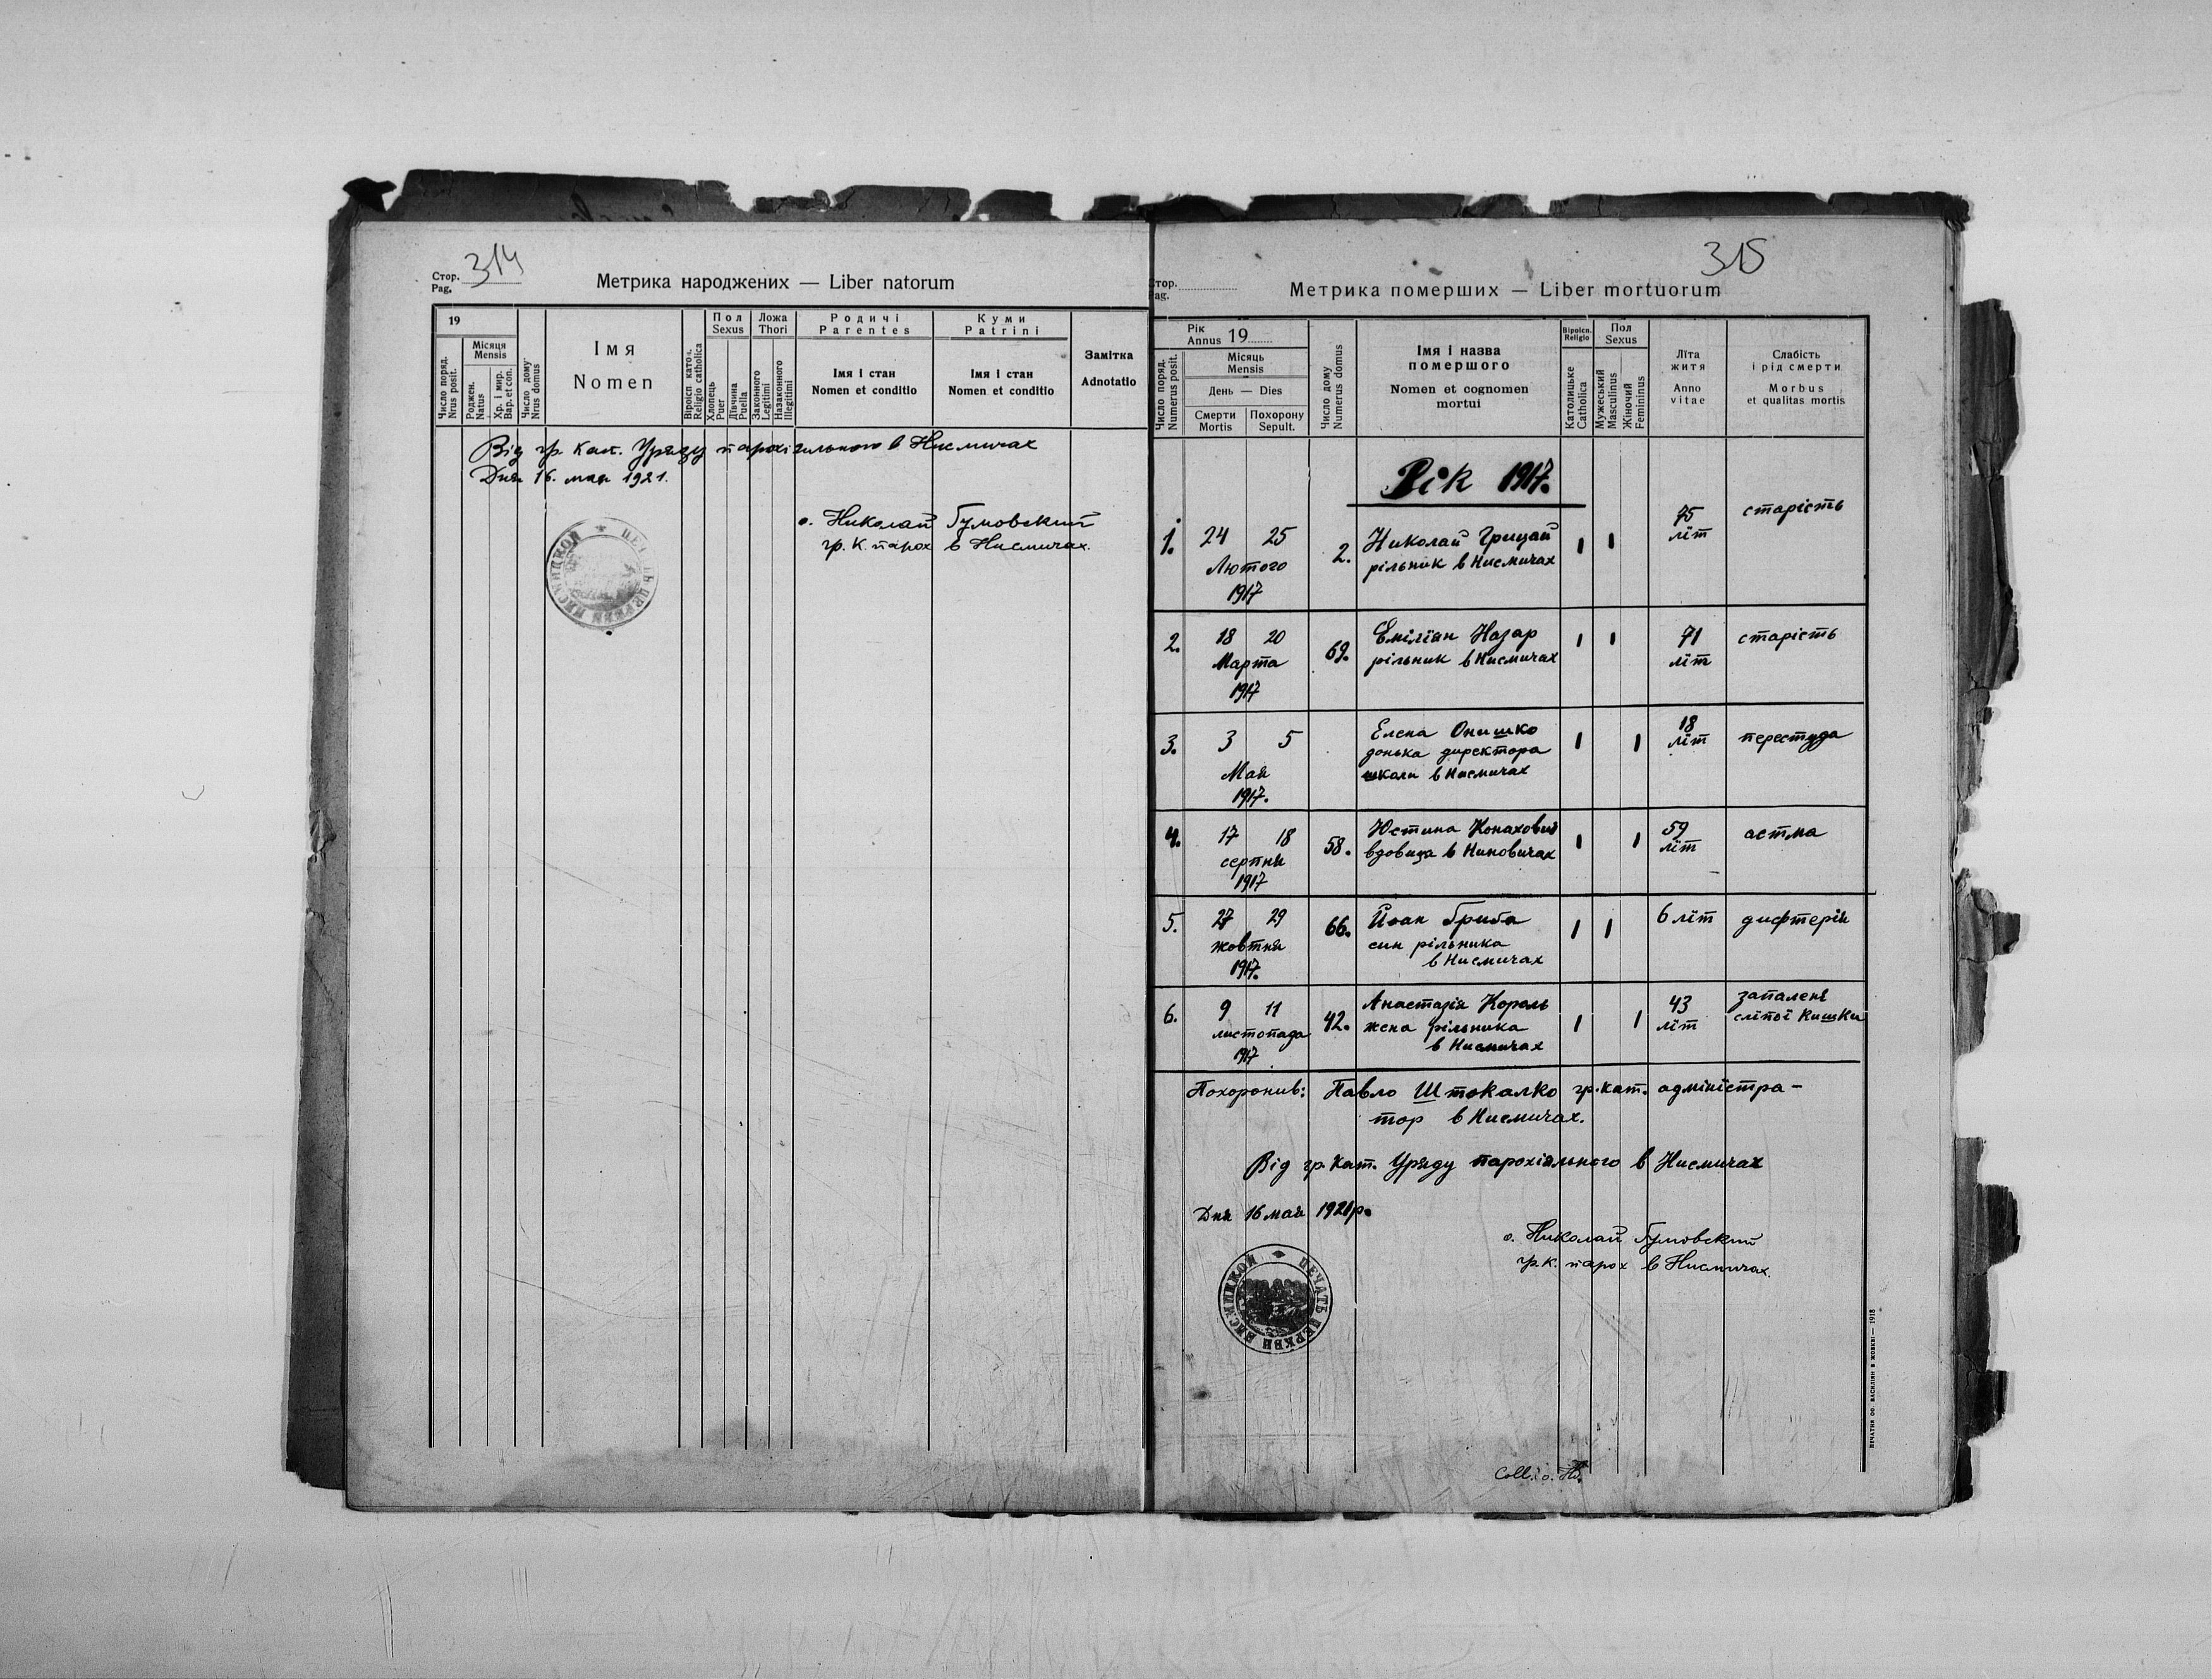 Стор.
Pag.
314
Метрика народжених — Liber natorum
19
Число поряд.
Nrus posit.
Місяця
Mensis
Роджен.
Natus
Хр. і мир.
Bap. et con.
Число дому
Nrus domus
Імя
Nomen
Віроісп като л.
Religio catholica
Пол
Sexus
Хлопець
Puer
Дівчина
Puella
Ложа
Thori
Законного
Legitimi
Назаконного
Illegitimi
Родичі
Parentes
Імя і стан
Nomen et conditio
Куми
Patrini
Імя і стан
Nomen et conditio
Замітка
Adnotatio
Від гр. кат. Уряду парохіяльного в Нисмичах
Дня 16. мая 1921.
о. Николай Гумовский
гр. к. парох в Нисмичах.
315
Стор.
Pag.
Метрика померших — Liber mortuorum
Число поряд.
Numerus posit.
Рік
Annus 19
Місяць
Mensis
День — Dies
Смерти
Mortis
Похорону
Sepult.
Число дому
Numerus domus
Імя і назва
помершого
Nomen et cognomen
mortui
Віроісп.
Religio
Католицьке
Catholica
Пол
Sexus
Мужеський
Masculinus
Жіночий
Femininus
Літа
житя
Anno
vitae
Слабість
і рід смерти
Morbus
et qualitas mortis
Рік 1917.
1. 24 25 Лютого 1917 2. Николай Грицай
рільник в Нисмичах 75 літ старість
2. 18 20 Марта 1917 69. Еміліян Назар
рільник в Нисмичах 71 літ старість
3. 3 5 Мая 1917. Елена Онишко
донька директора
школи в Нисмичах 18 літ перестуда
4. 17 18 серпня 1917 58. Юстина
вдовиця в 59 літ астма
5. 27 29 жовтня 1917. 66. Йоан Гриба
син рільника
в Нисмичах 6 літ дифтерія
6. 9 11 листопада 1917 42. Анастазія Король
жена рільника
в Нисмичах 43 літ запаленє
сліпої кишки
Похоронив: Павло Штокалко гр. кат. адміністра-
тор в Нисмичах.
Від гр. кат. Уряду парохіяльного в Нисмичах
Дня 16 мая 1921 р.
о. Николай Гумовский
гр. к. парох в Нисмичах.
ПЕЧАТЬ ЦЕРКВИ
Coll. о.
ПЕЧАТНЯ ОО. ВАСИЛІЯН В ЖОВКВІ — 1918